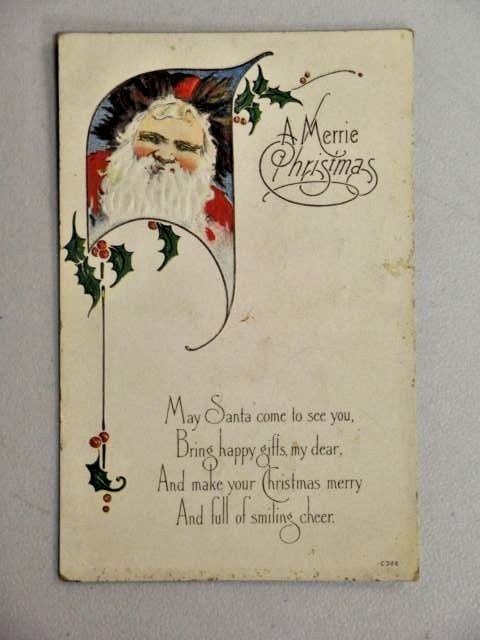 A Merrie
Christmas
May Santa come to see you,
Bring happy gifts, my dear,
And make your Christmas merry
And full of smiling cheer.